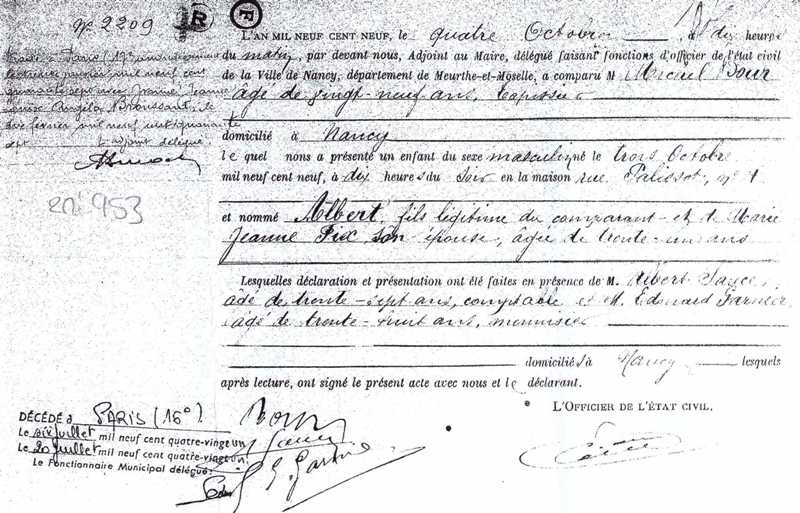 N° 2209
R
R
L'AN MIL NEUF CENT NEUF, le quatre Octobre à dix heures
du matin, par devant nous, Adjoint au Maire, délégué faisant fonctions d'officier de l'état civil
de la Ville de Nancy, département de Meurthe-et-Moselle, a comparu M
âgé de vingt-neuf ans, tapissier
domicilié à Nancy
lequel nous a présenté un enfant du sexe masculin, né le trois Octobre
mil neuf cent neuf, à dix heures du soir en la maison rue Palissot, n°
et nommé Albert, fils légitime du comparant et de Marie
Jeanne son épouse, âgée de trente-un ans
Lesquelles déclaration et présentation ont été faites en présence de M. Albert
âgé de trente-sept ans, comptable et M. Edouard Garnier
âgé de trente-huit ans, menuisier
domiciliés à Nancy lesquels
après lecture, ont signé le présent acte avec nous et le déclarant.
L'OFFICIER DE L'ÉTAT CIVIL.
Marié à Paris (19e arrondissement)
mil neuf cent
Jeanne
Angèle Broussard, le
février mil neuf cent quarante
sept L'adjoint délégué
en: 953
DÉCÉDÉ à PARIS (16e).
Le six juillet mil neuf cent quatre-vingt un
Le 20 juillet mil neuf cent quatre-vingt un
Le Fonctionnaire Municipal délégué: